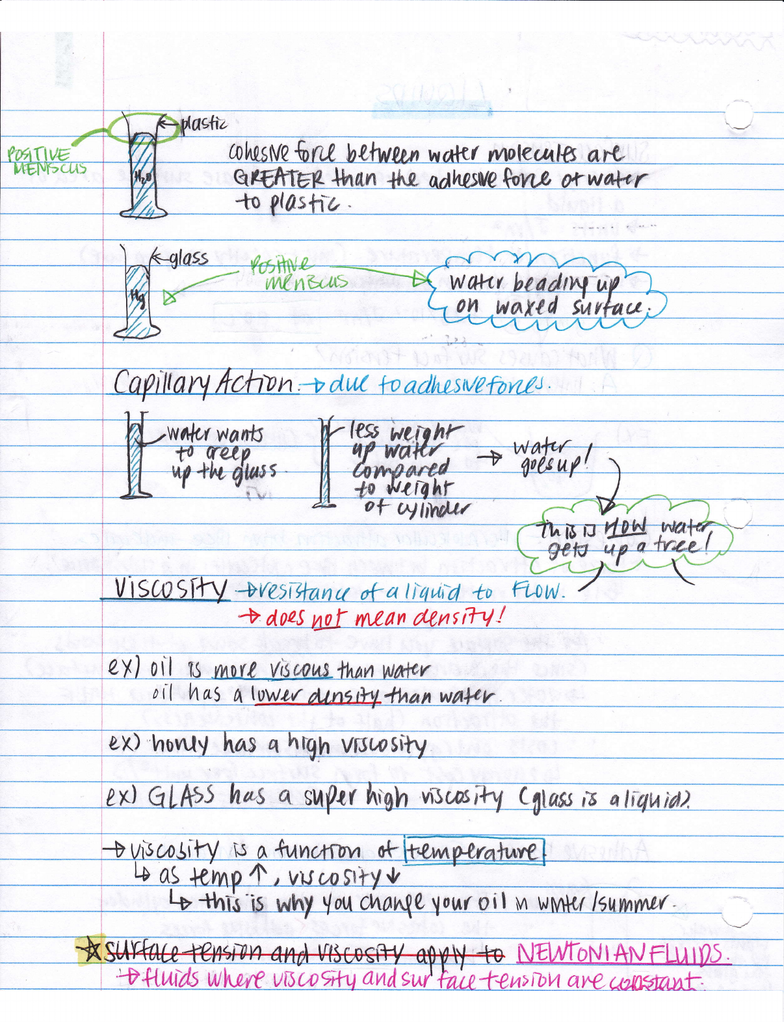 ←plastic
POSITIVE
MENISCUS
H₂O
cohesive force between water molecules are
GREATER than the adhesive force of water
to plastic.
←glass
POSITIVE
MENISCUS
Hg
water beading up
on waxed surface.
Capillary Action → due to adhesive forces.
water wants
to creep
up the glass.
less weight
up water
compared
to weight
of cylinder
→ water
goes up!
This is HOW water
gets up a tree!
VISCOSITY → resistance of a liquid to FLOW.
→ does not mean density!
ex) oil is more viscous than water
oil has a lower density than water.
ex) honey has a high viscosity
ex) GLASS has a super high viscosity (glass is a liquid).
→ viscosity is a function of temperature.
↳ as temp ↑, viscosity ↓
↳ this is why you change your oil in winter/summer.
☆ surface tension and viscosity apply to NEWTONIAN FLUIDS.
→ fluids where viscosity and surface tension are constant.